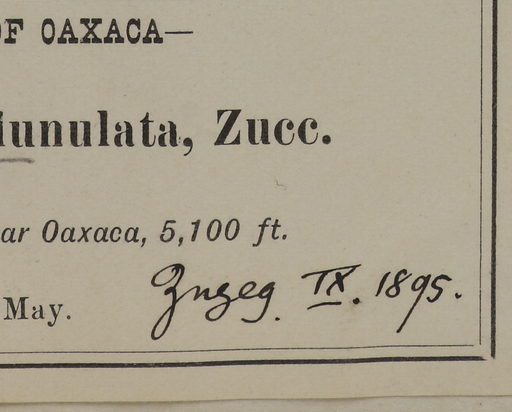 OF OAXACA—
lunulata, Zucc.
ar Oaxaca, 5,100 ft.
May. Zugeg. IX. 1895.